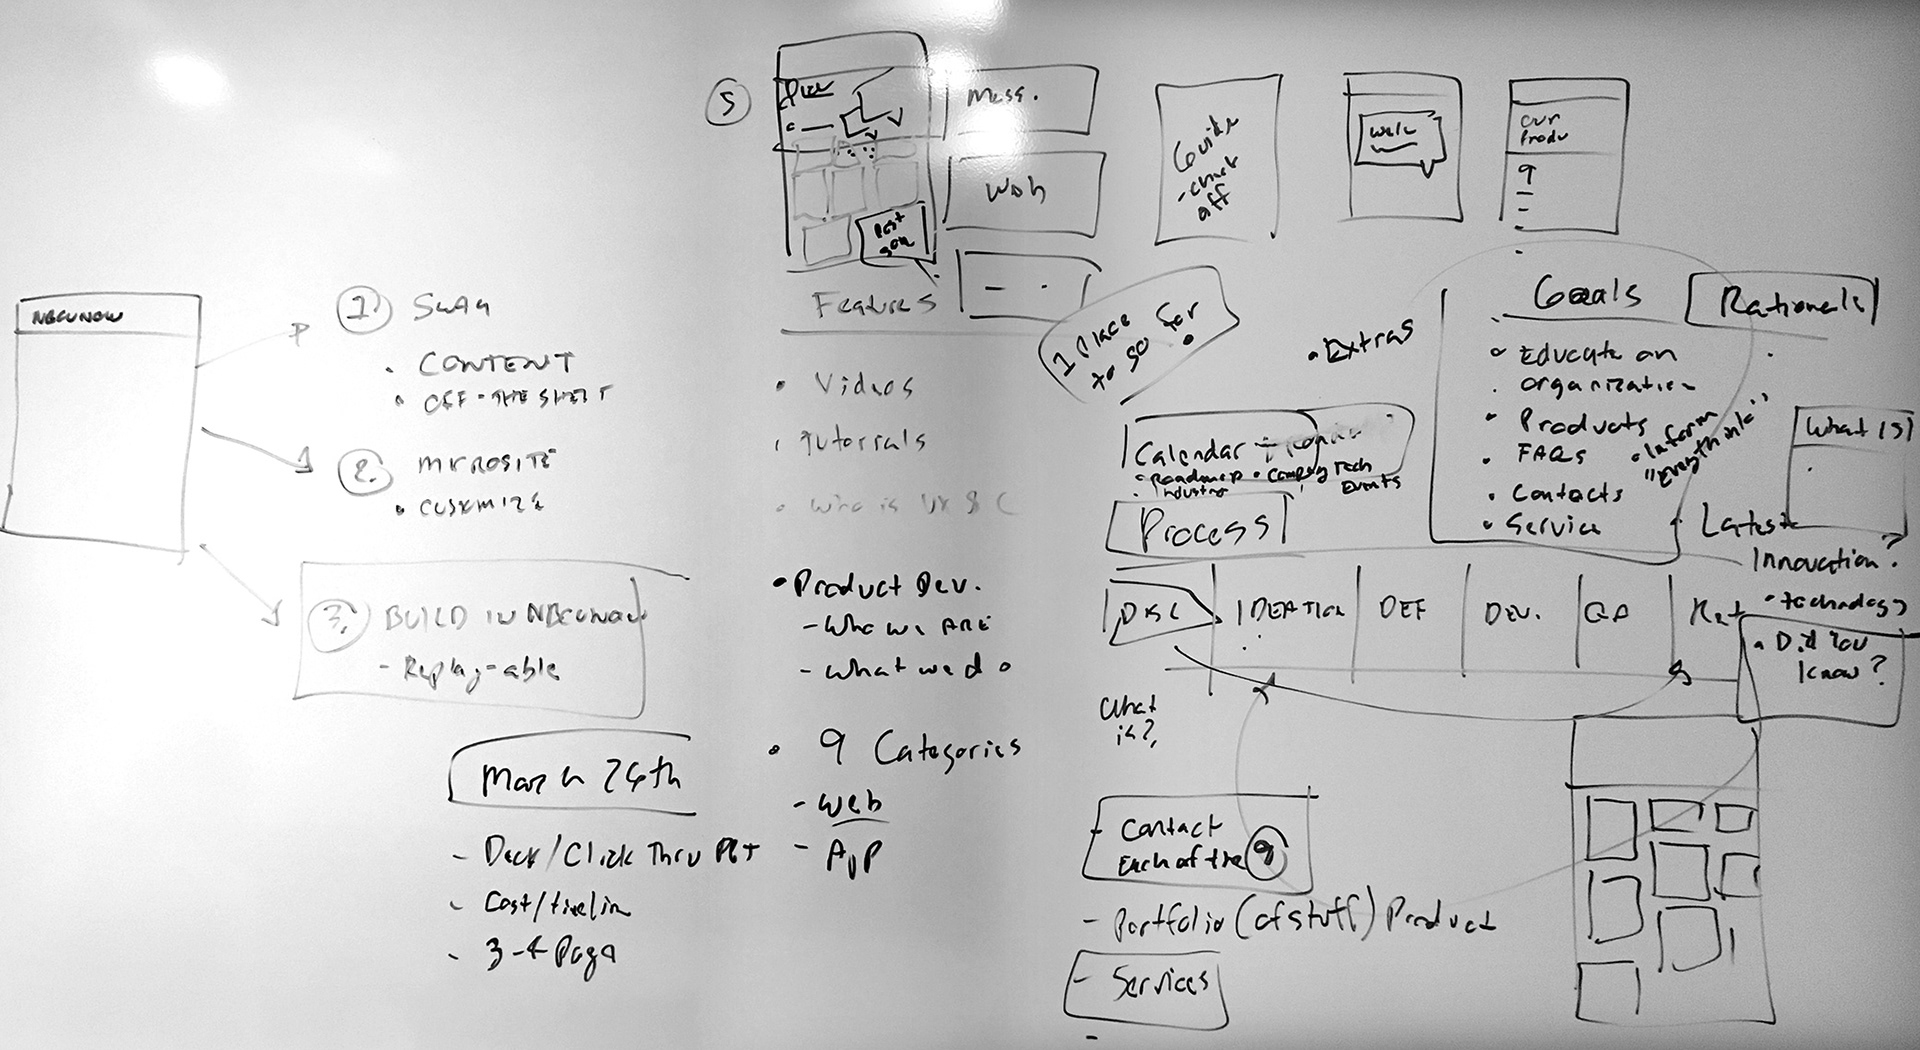 NBCUNOW
1. SWAG
• CONTENT
• OFF-THE SHELF
2. MICROSITE
• CUSTOMIZE
3. BUILD IN NBCUNOW
- Replay-able
March 26th
- Deck/Click Thru PPT
- Cost/timeline
- 3-4 Page
5
Mess.
Web
Features
• Videos
• Tutorials
• Who is UX & C
• Product Dev.
- Who we ARE
- What we do
• 9 Categories
- Web
- App
Guide
- check
off
Welc
our
Produ
9
1 Place
to go for
• Extras
Calendar +
• Roadmap • Company Tech
Industry Events
Process
DISC
IDEATION
DEF
DEV.
QA
What
is?
- Contact
Each of the 9
- Portfolio (of stuff) Product
- Services
Goals
• Educate on
organization
• Products
• FAQs
• Contacts
• Service
• Inform
Rationale
What is
Latest
Innovation?
• technology
• Did You
Know?